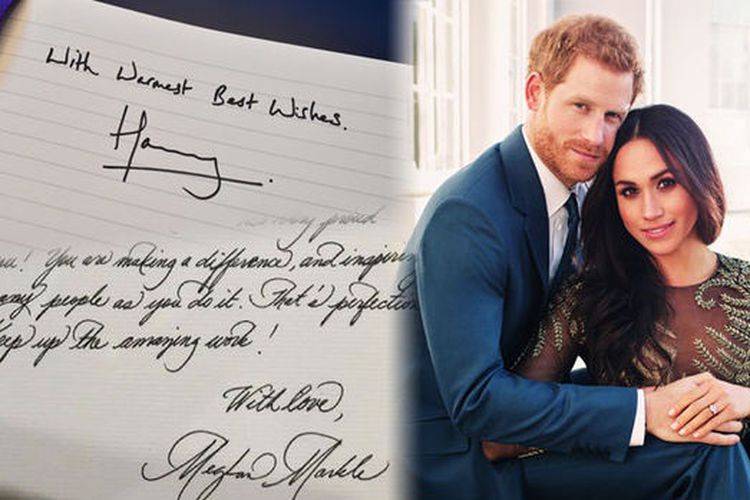 With Warmest Best Wishes.
Harry
proud
You are making a difference, and
people as you do it. That's perfection
up the amazing work!
With love,
Meghan Markle